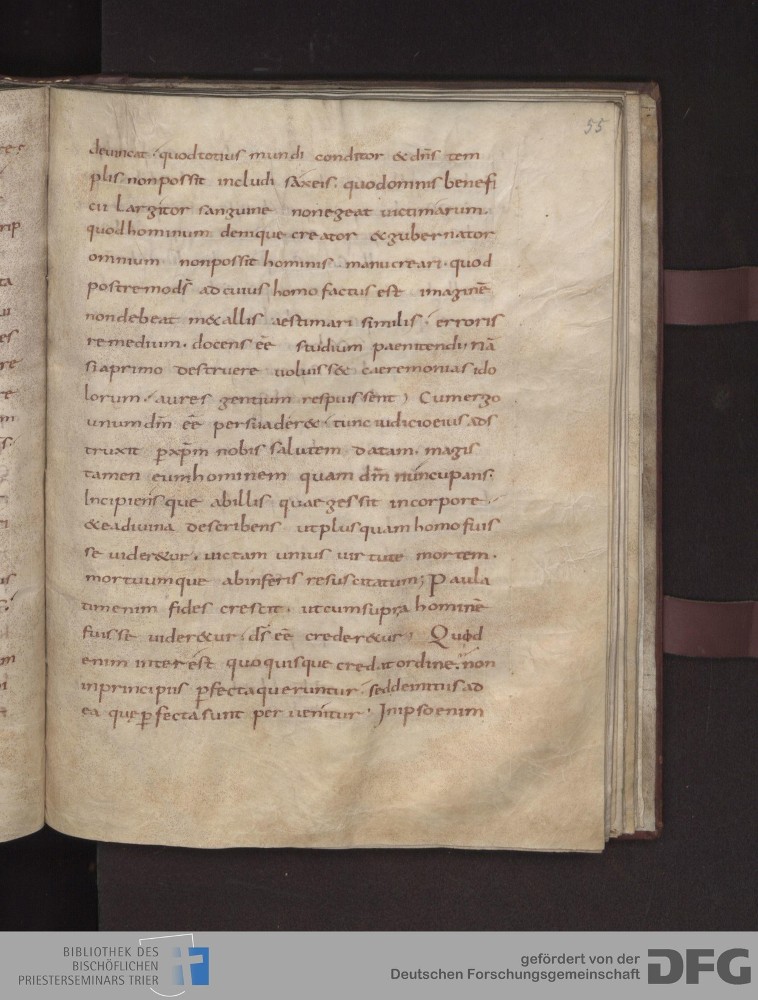 55
deuincat · quod totius mundi conditor & dn̄s tem
plis non possit includi saxeis · quod omnis benefi
cii largitor sanguine non egeat uictimarum ·
quod hominum denique creator & gubernator
omnium non possit hominis manu creari · quod
postremo ds̄ ad cuius homo factus est imaginē
non debeat m&allis aestimari similis · erroris
remedium · docens eē studium paenitendi · nā
si a primo destruere uoluiss& caeremonias ido
lorum · aures gentium respuissent ; Cum ergo
unum dm̄ eē persuader& · tunc iudicio eius ads
truxit p xp̄m nobis salutem datam · magis
tamen eum hominem quam dm̄ nuncupans ·
Incipiens que ab illis quae gessit in corpore ·
& ea diuina describens ut plus quam homo fuis
se uider&ur · uictam unius uirtute mortem ·
mortuumque ab inferis resuscitatum ; Paula
tim enim fides crescit · ut cum supra hominē
fuisse uider&ur · ds̄ eē creder&ur ; Quid
enim interest quo quisque credat ordine · non
in principiis pfecta queruntur · sed de initiis ad
ea quę pfecta sunt peruenitur · In ipso enim
BIBLIOTHEK DES
BISCHÖFLICHEN
PRIESTERSEMINARS TRIER
gefördert von der
Deutschen Forschungsgemeinschaft
DFG